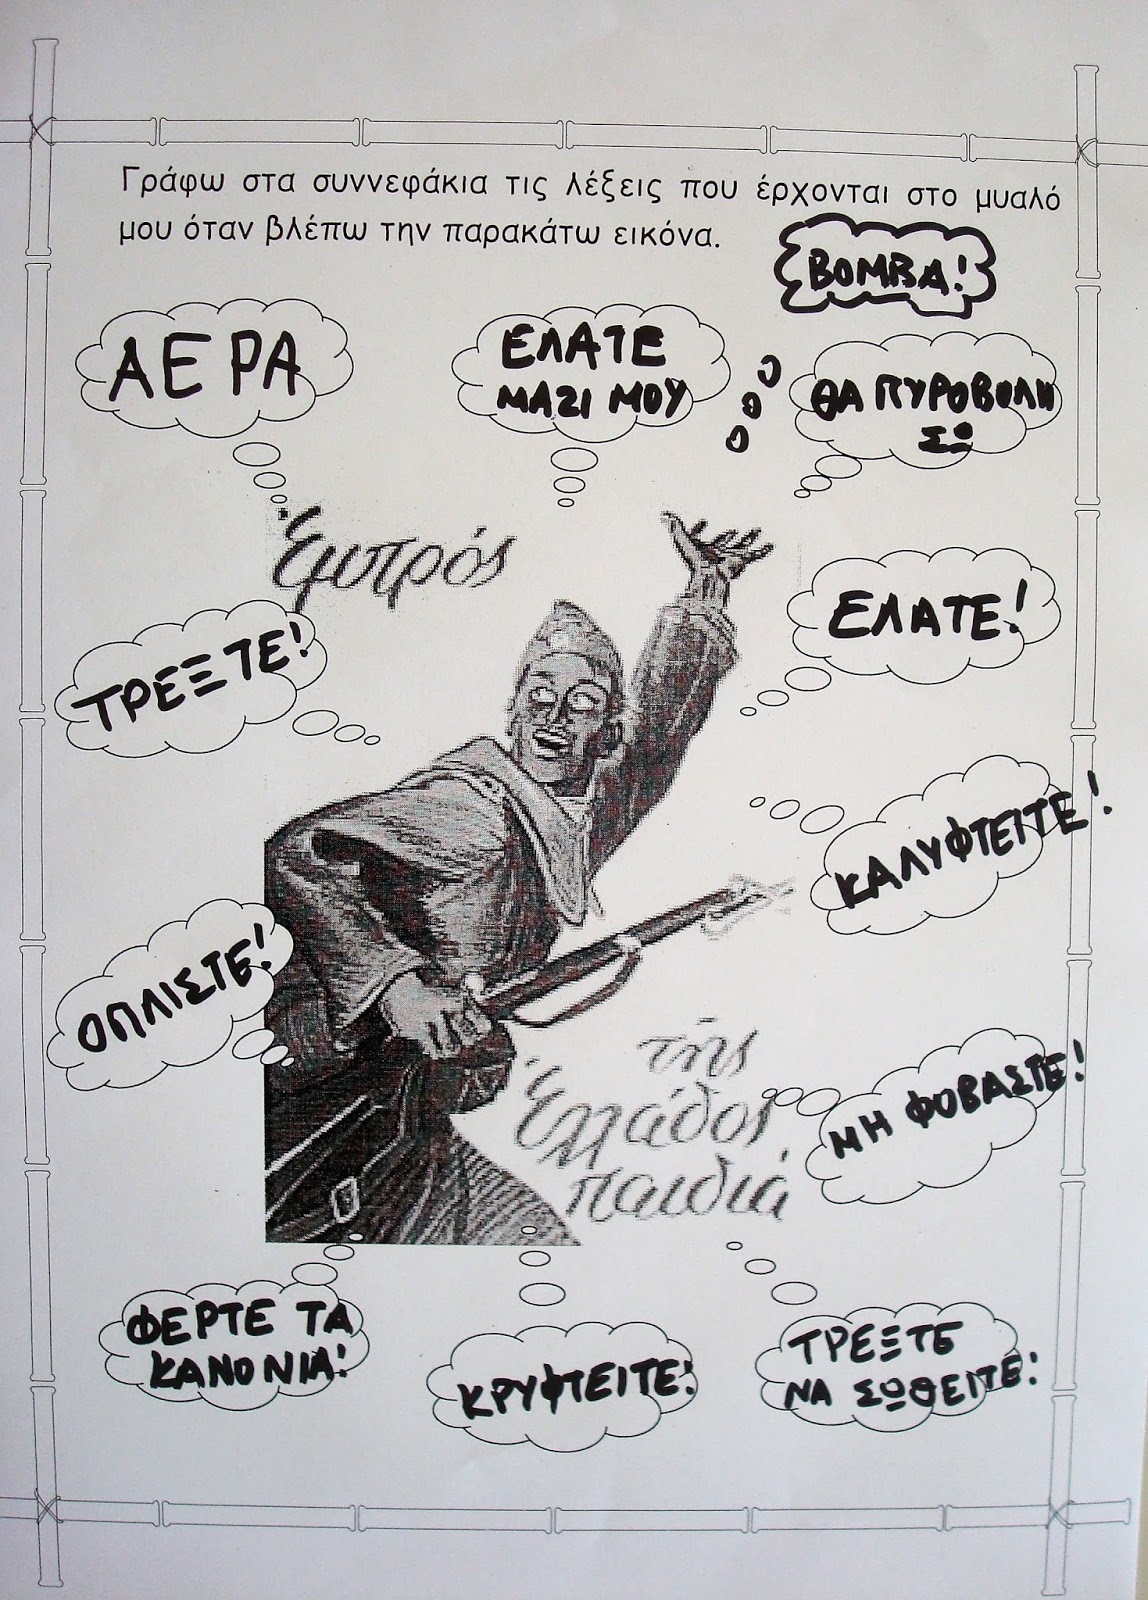 Γράφω στα συννεφάκια τις λέξεις που έρχονται στο μυαλό
μου όταν βλέπω την παρακάτω εικόνα.
ΒΟΜΒΑ!
ΑΕΡΑ
ΕΛΑΤΕ
ΜΑΖΙ ΜΟΥ
ΘΑ ΠΥΡΟΒΟΛΗ
ΣΩ
Ἐμπρός
ΤΡΕΞΤΕ!
ΕΛΑΤΕ!
ΚΑΛΥΦΤΕΙΤΕ!
ΟΠΛΙΣΤΕ!
τῆς
Ἑλλάδος
παιδιά
ΜΗ ΦΟΒΑΣΤΕ!
ΦΕΡΤΕ ΤΑ
ΚΑΝΟΝΙΑ!
ΚΡΥΦΤΕΙΤΕ!
ΤΡΕΞΤΕ
ΝΑ ΣΩΘΕΙΤΕ!